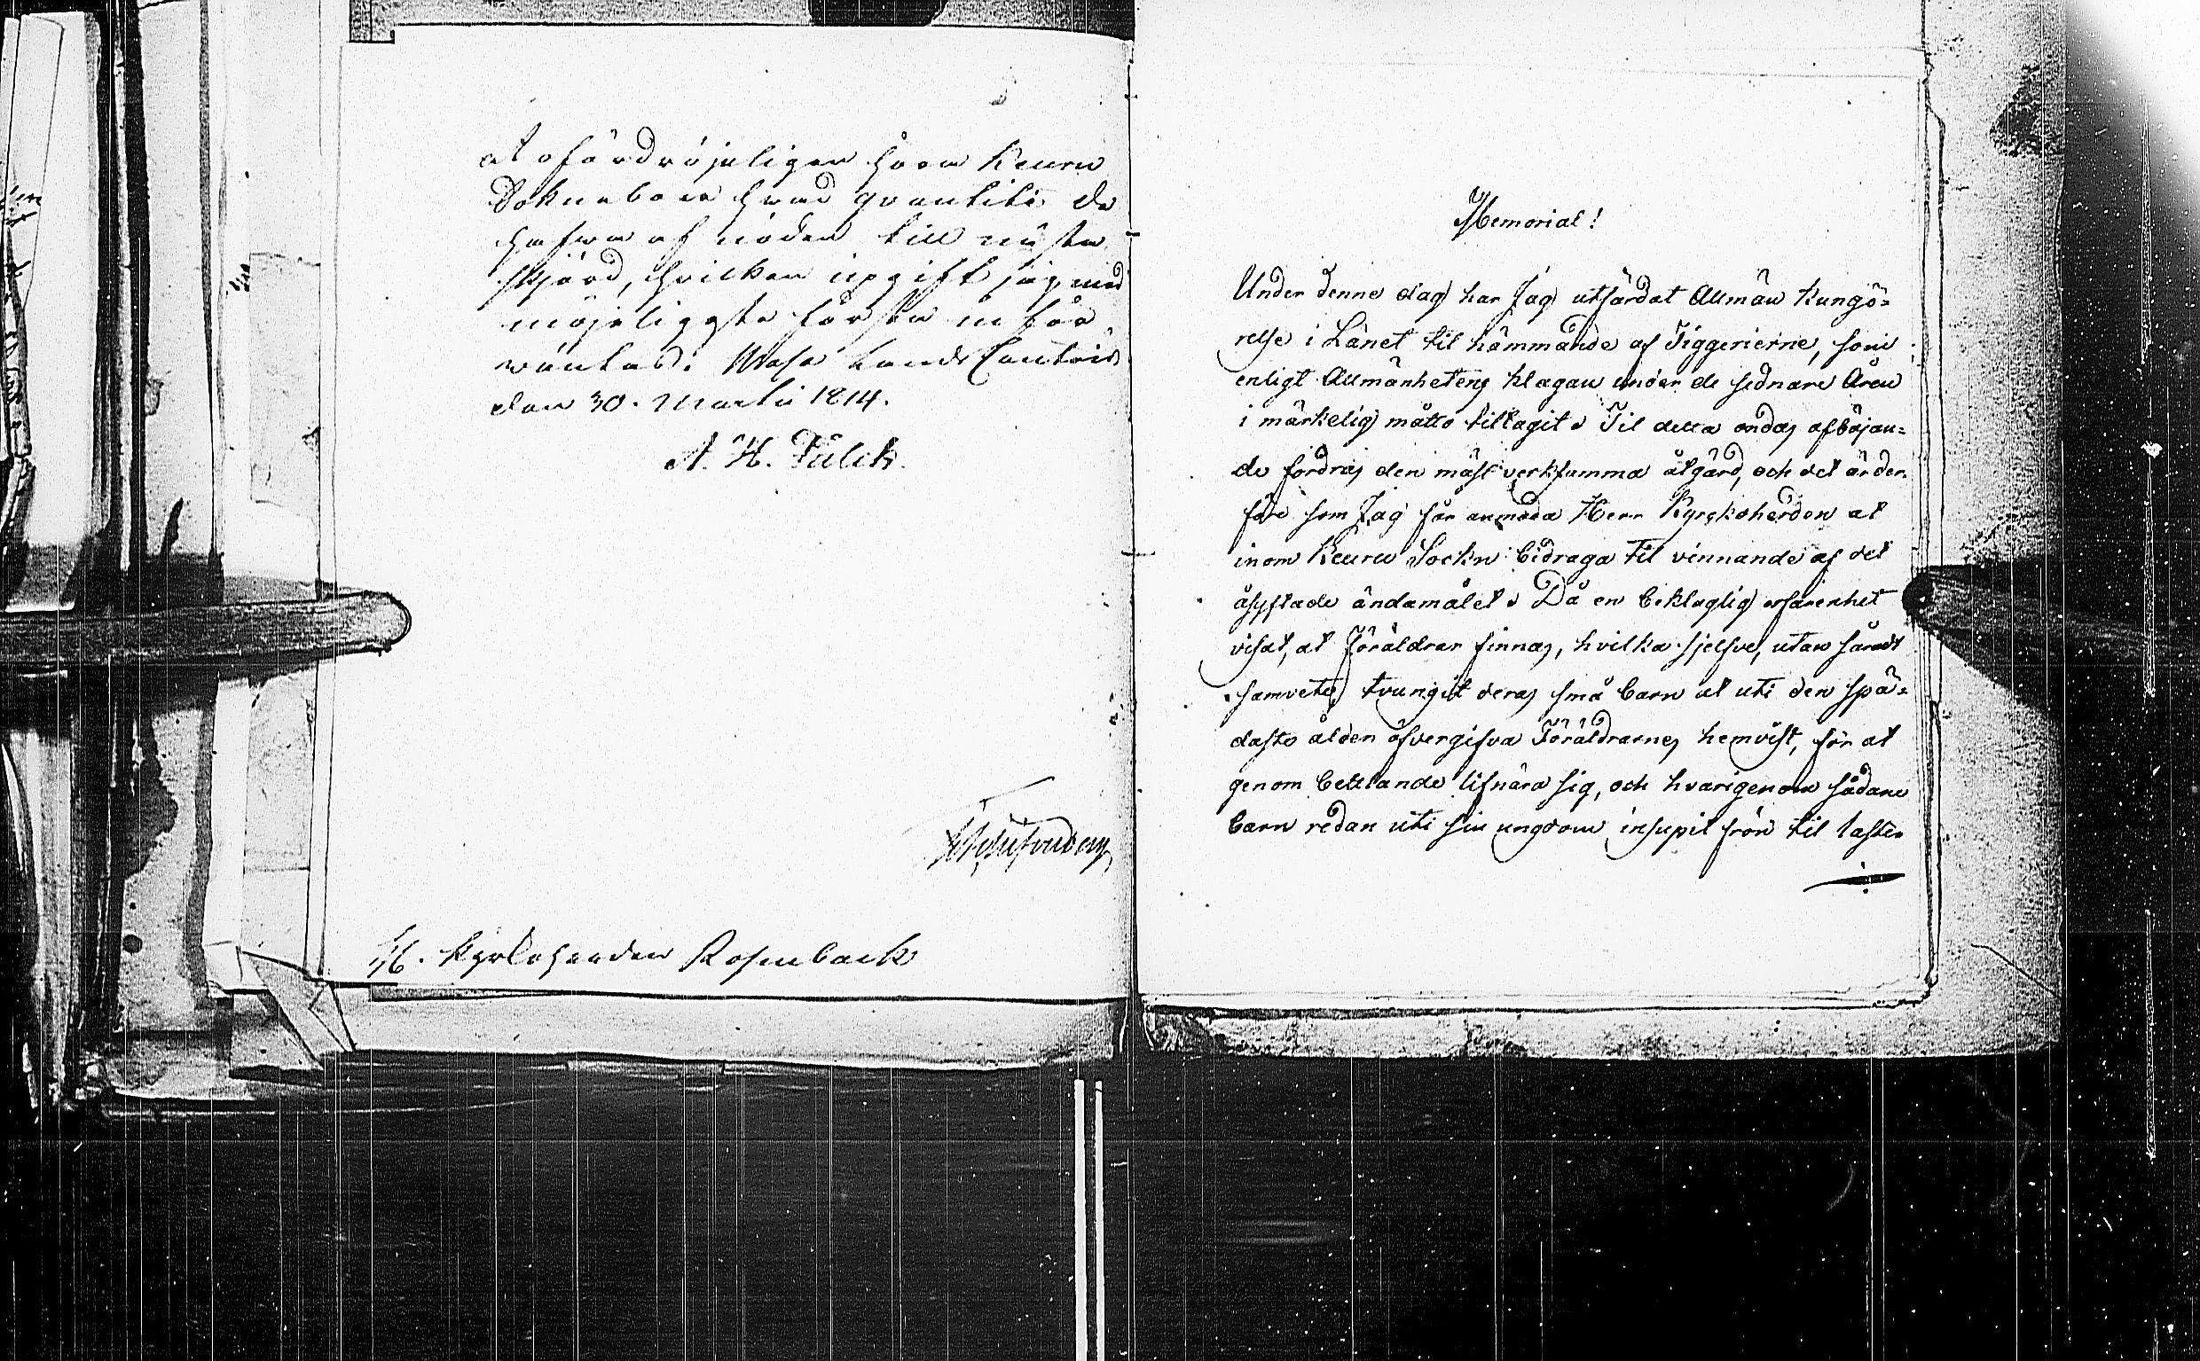 at ofördröjeligen höra Keuru
Sokneboer hvad qvantité de
hafva af nöden till nästa
skjörd, hvilken upgift jag med
möjeligaste första inför
väntar. Wasa Lands Cantoir
den 30. Martii 1814.
A. H. Falck.
H. Kyrkoherden Rosenback
Memorial!
Under denne dag har Jag utfärdat Allmän Kungö=
relse i Länet til hämmande af Tiggerierne, som
enligt Allmänhetens klagan under de sednare Åren
i märkelig måtto tiltagit. Til detta ondas afböjan=
de fordras den mäst verksamma åtgärd, och det är der
före som Jag får anmoda Herr Kyrkoherden at
inom Keuru Sockn bidraga til vinnande af det
åsyftade ändamålet. Då en beklaglig erfarenhet
visat, at Föräldrar finnas, hvilka sjelfve, utan såradt
samvete, tvungit deras små barn at uti den spä=
dasto ålden öfvergifva Föräldrarnes hemvist, för at
genom bettlande lifnära sig, och hvarigenom sådane
barn redan uti sin ungdom insupit frön til laster